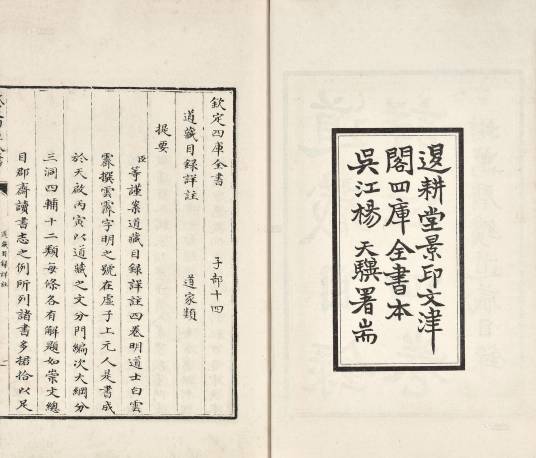 退耕堂景印文津
閣四庫全書本
吳江楊天驥署耑
欽定四庫全書　子部十四
道藏目録詳註　道家類
提要
臣等謹案道藏目録詳註四卷明道士白雲
霽撰雲霽字明之號在虛子上元人是書成
於天啟丙寅以道藏之文分門編次大綱分
三洞四輔十二類每條各有解題如崇文總
目郡齋讀書志之例所列諸書多捃拾以足
道藏目録詳註